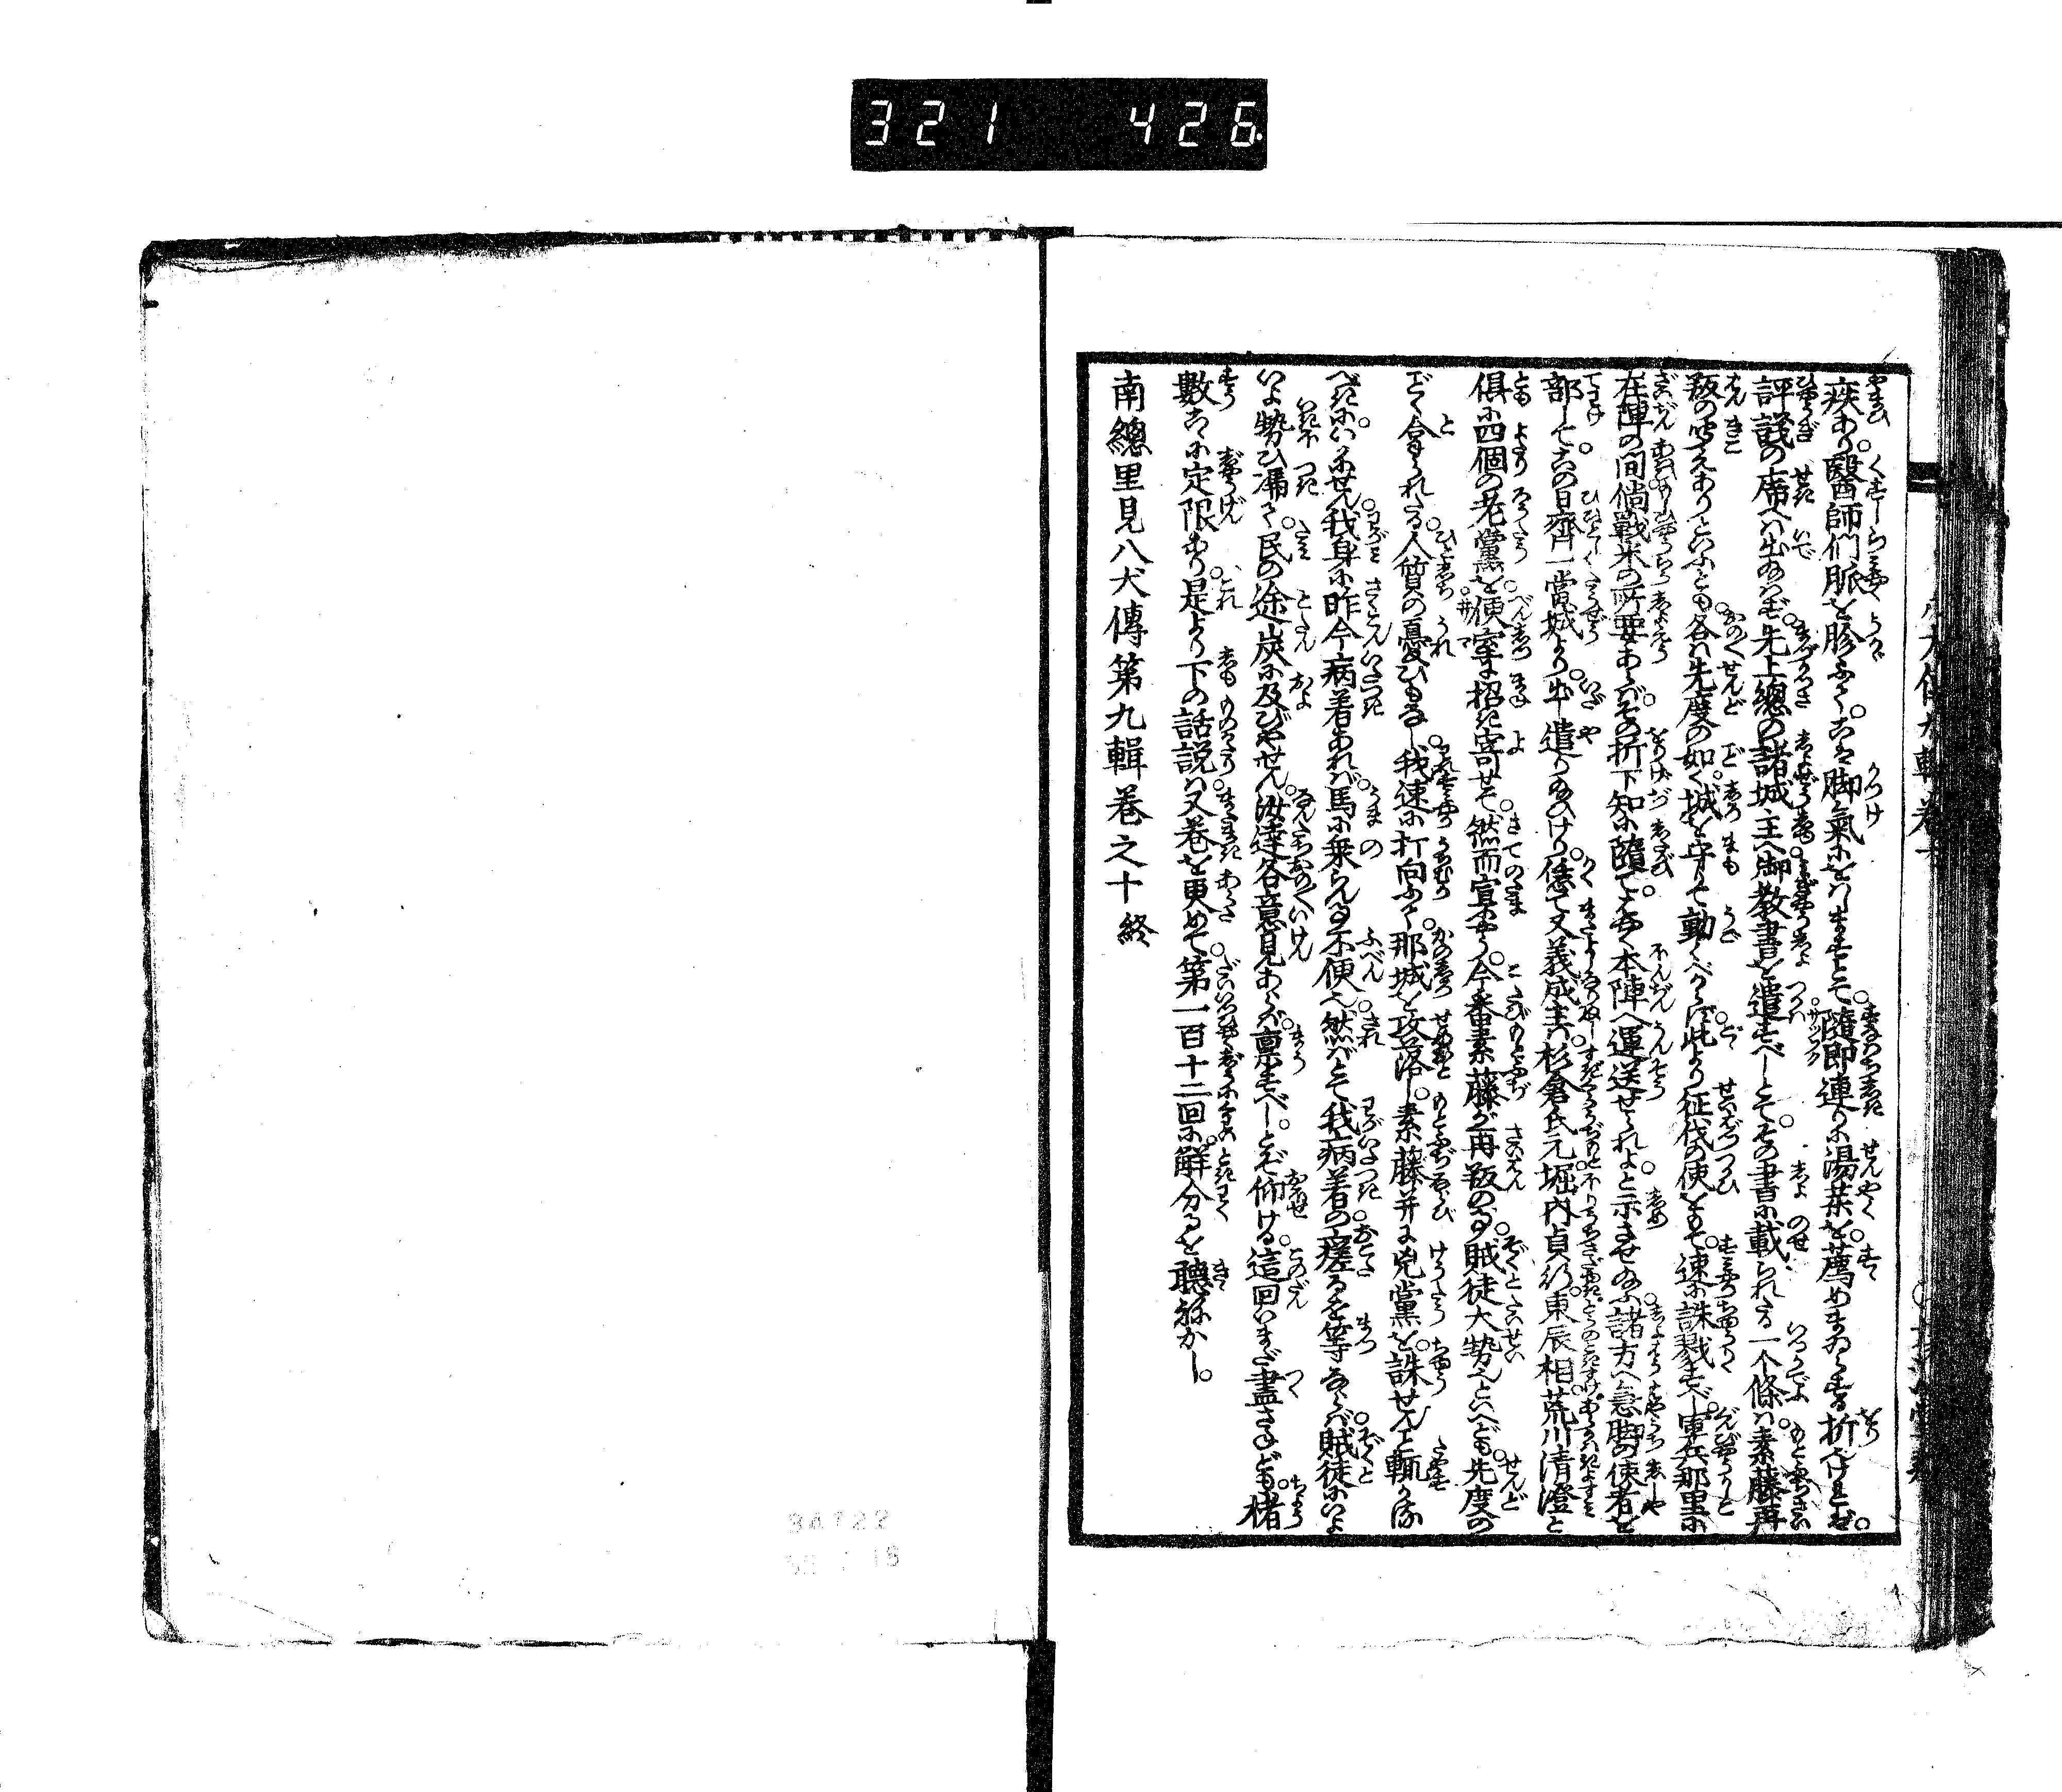 321 426
疾あり。醫師們脈を胗ふて。こは脚氣にをはすとて。隨即連りに湯藥を。薦めまゐらする折なれば。
評議の席へは出給はず。先上總の諸城主へ。御教書を遣すべしとて。その書に載られたる一个條は。素藤再
叛の聞えありといふとも。各は先度の如く。城を守りて動くべからず。此より征伐の使をもて。速に誅戮すべし。軍兵那里に
在陣の間。倘戰米の所要あらば。その折下知に隨て。はやく本陣へ運送せられよ。と示させ給ふ。諸方へ急脚の使者を
部して。この日齊一當城より。出し遣り給ひけり。恁て又義成主は。杉倉氏元。堀内貞行。東辰相。荒川清澄と
倶に四個の老黨を。便室に招き寄せて。然而宣ふやう。今番素藤が再叛の事。賊徒大勢也といへども。先度の
ごとく合られたる。人質の憂ひもなし。我速に打向ふて。那城を攻落し。素藤并に兇黨を。誅せんこと輒かる
べきに。いかにせん。我身に昨今病着あれば。馬に乘らんは不便也。然ばとて。我病着の瘥るを等なば。賊徒にいよ
いよ勢ひ漏て。民の途炭に及びやせん。汝達各意見あらば。稟すべし。とぞ仰ける。這回いまだ盡さねども。楮
數こゝに定限あり。是より下の話説は。又巻を更めて。第一百十二回に。解分るを聽ねかし。
南總里見八犬傳第九輯巻之十終